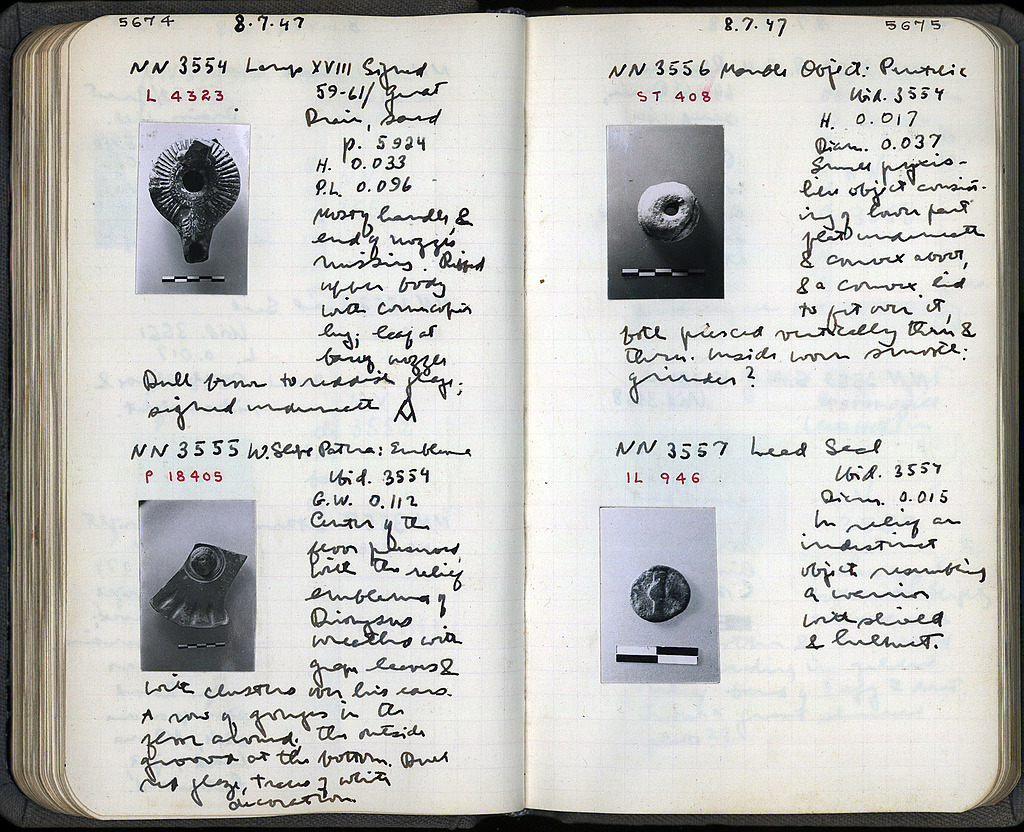 5674 8.7.47
NN 3554 Lamp XVIII Signed
L 4323 59-61/ Great
Drain, Sand
p. 5924
H. 0.033
P.L. 0.096
Most of handle, &
end of nozzle
missing. Ribbed
upper body
with cornucopia
lug; leaf at
base of nozzle
Dull brown to reddish glaze;
signed underneath Α
NN 3555 W. Slope Patera: Emblema
P 18405 Ibid. 3554
G.W. 0.112
Center of the
floor preserved,
with the relief
emblema of
Dionysos
wreathed with
grape leaves &
with clusters over his ears.
A row of gouges in the
floor around, the outside
grooved at the bottom. Dull
red glaze, traces of white
decoration
8.7.47 5675
NN 3556 Marble Object: Pentelic
ST 408 Ibid. 3554
H. 0.017
Diam. 0.037
Small pyxis-
like object consist-
ing of lower part
flat underneath
& convex above,
& a convex lid
to fit over it,
both pierced vertically thru &
thru. Inside worn smooth:
grinder?
NN 3557 Lead Seal
IL 946 Ibid. 3554
Diam. 0.015
In relief an
indistinct
object resembling
a warrior
with shield
& helmet.